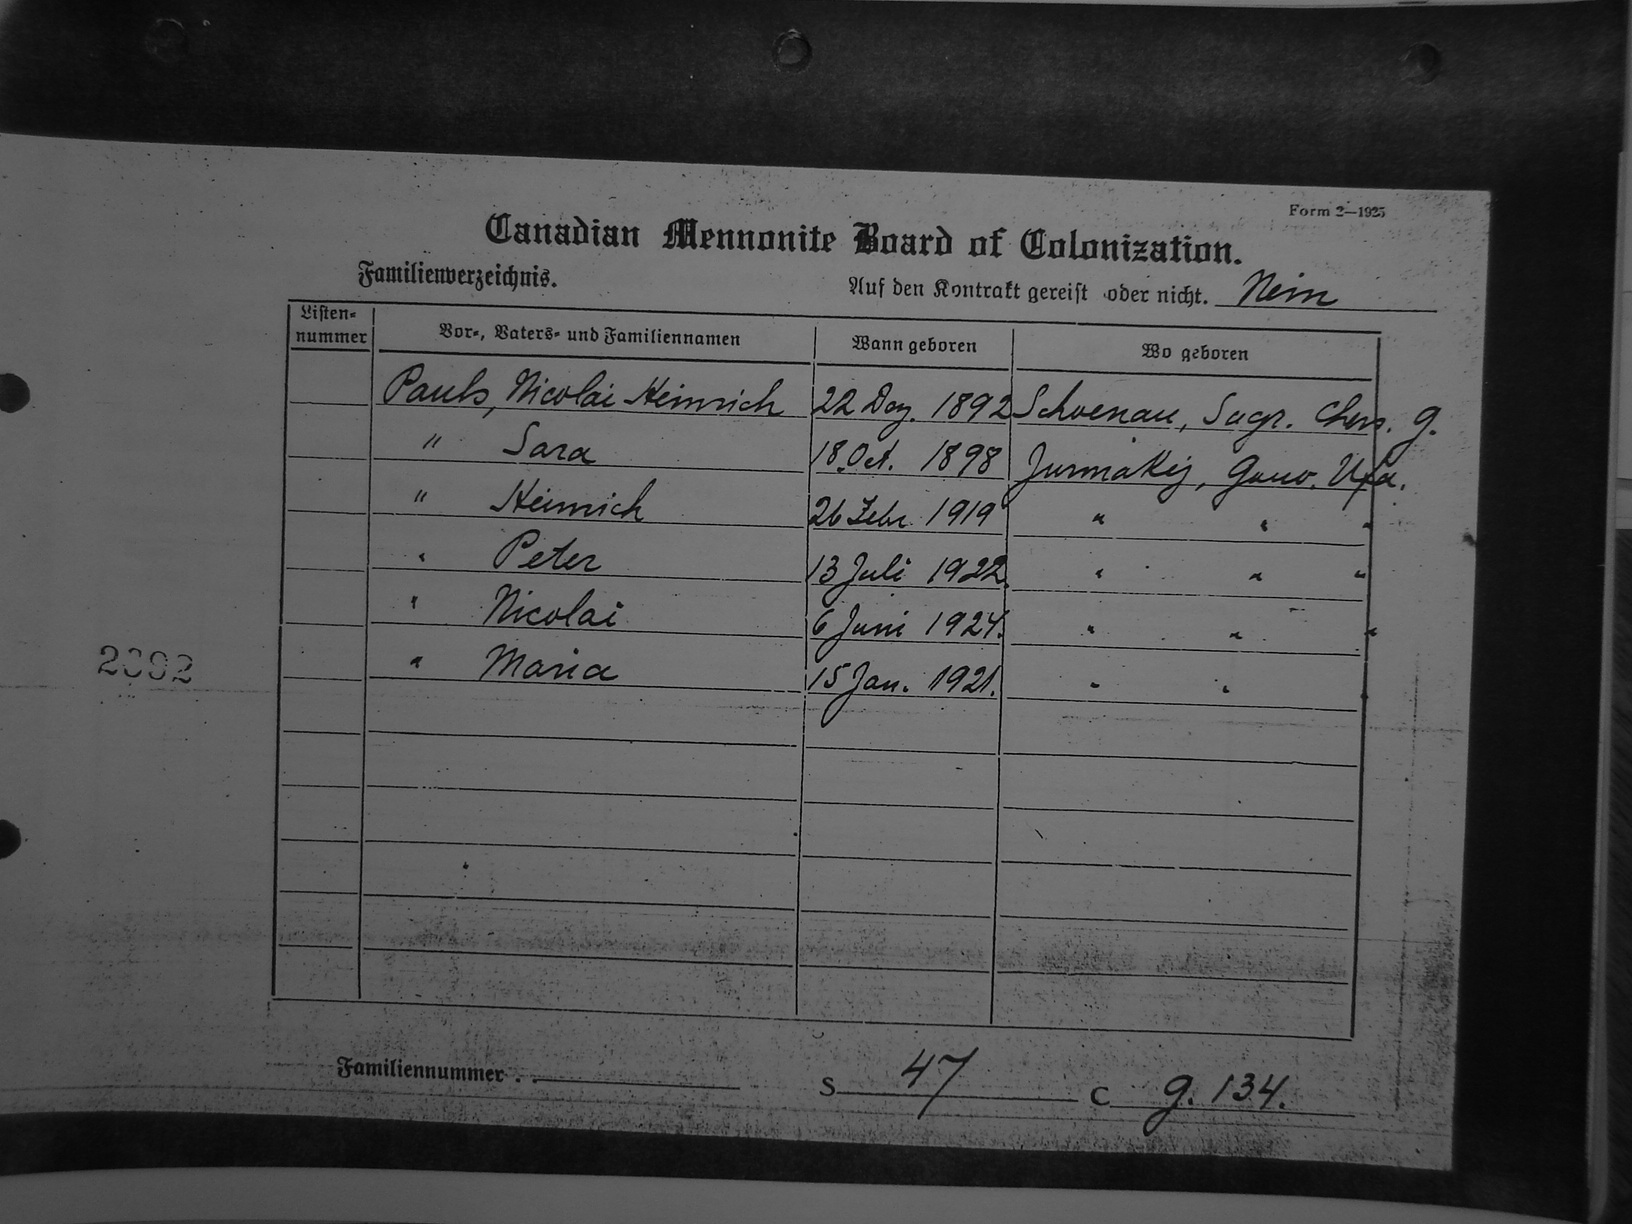 Form 2—1925
Canadian Mennonite Board of Colonization.
Familienverzeichnis. Auf den Kontrakt gereist oder nicht. Nein
Listen-
nummer Vor-, Vaters- und Familiennamen Wann geboren Wo geboren
Pauls, Nicolai Heinrich 22 Dez. 1892 Schoenau, Sagr. Chers. G.
" Sara 18. Oct. 1898 Jurmakij, Gouv. Ufa.
" Heinrich 26 Febr. 1919 " " "
" Peter 13 Juli 1922. " " "
" Nicolai 6 Juni 1924. " " "
2092
" Maria 15 Jan. 1921. " " "
Familiennummer . . S 47 C G. 134.